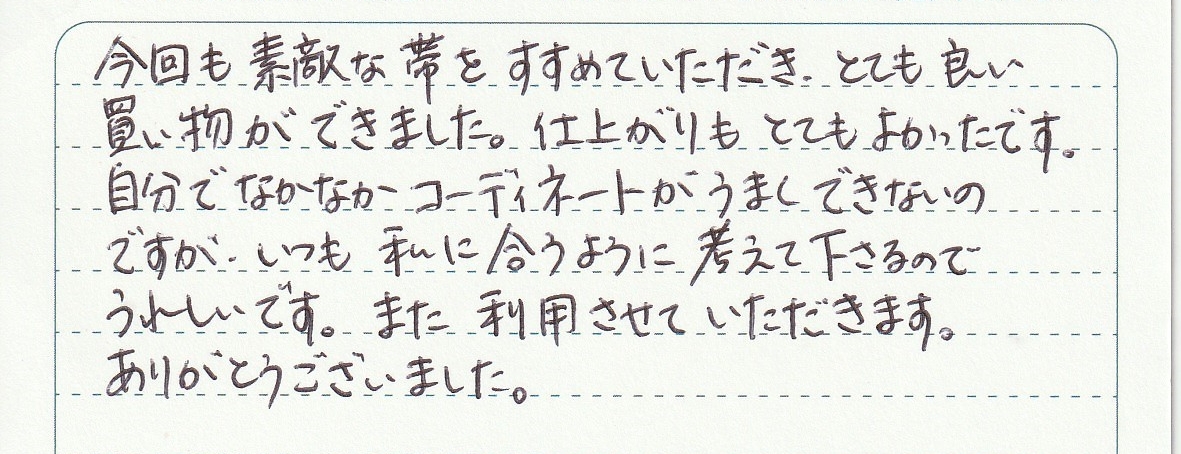 今回も素敵な帯をすすめていただき、とても良い
買い物ができました。仕上がりもとてもよかったです。
自分でなかなかコーディネートがうまくできないの
ですが、いつも私に合うように考えて下さるので
うれしいです。また利用させていただきます。
ありがとうございました。